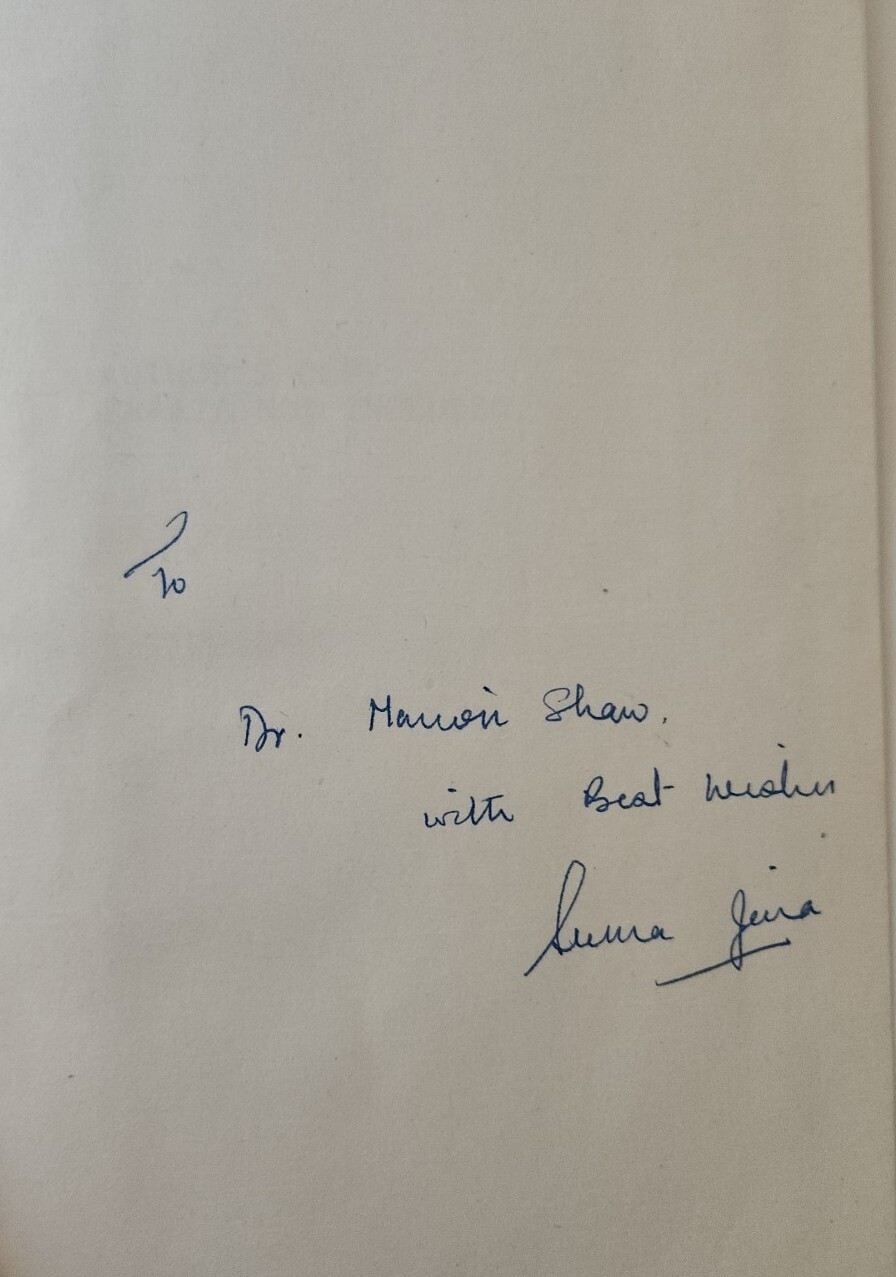 To
Dr. Marion Shaw.
with Best wishes
Seema Jena